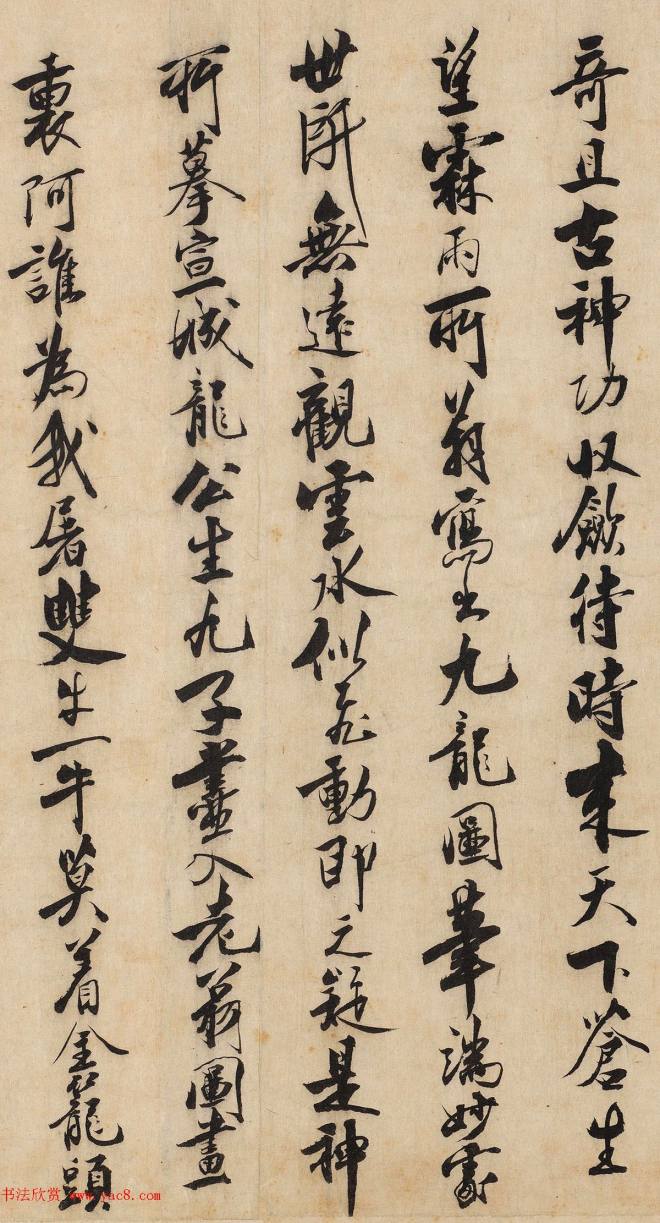 奇且古神功収斂待時来天下蒼生
望霖雨所翁寫出九龍圖筆端妙處
世所無遠觀雲水似飛動即之疑是神
所摹宣城龍公生九子盡入老翁圖畫
裏阿誰為我屠雙牛一牛莫着金籠頭
书法欣赏 www.yac8.com